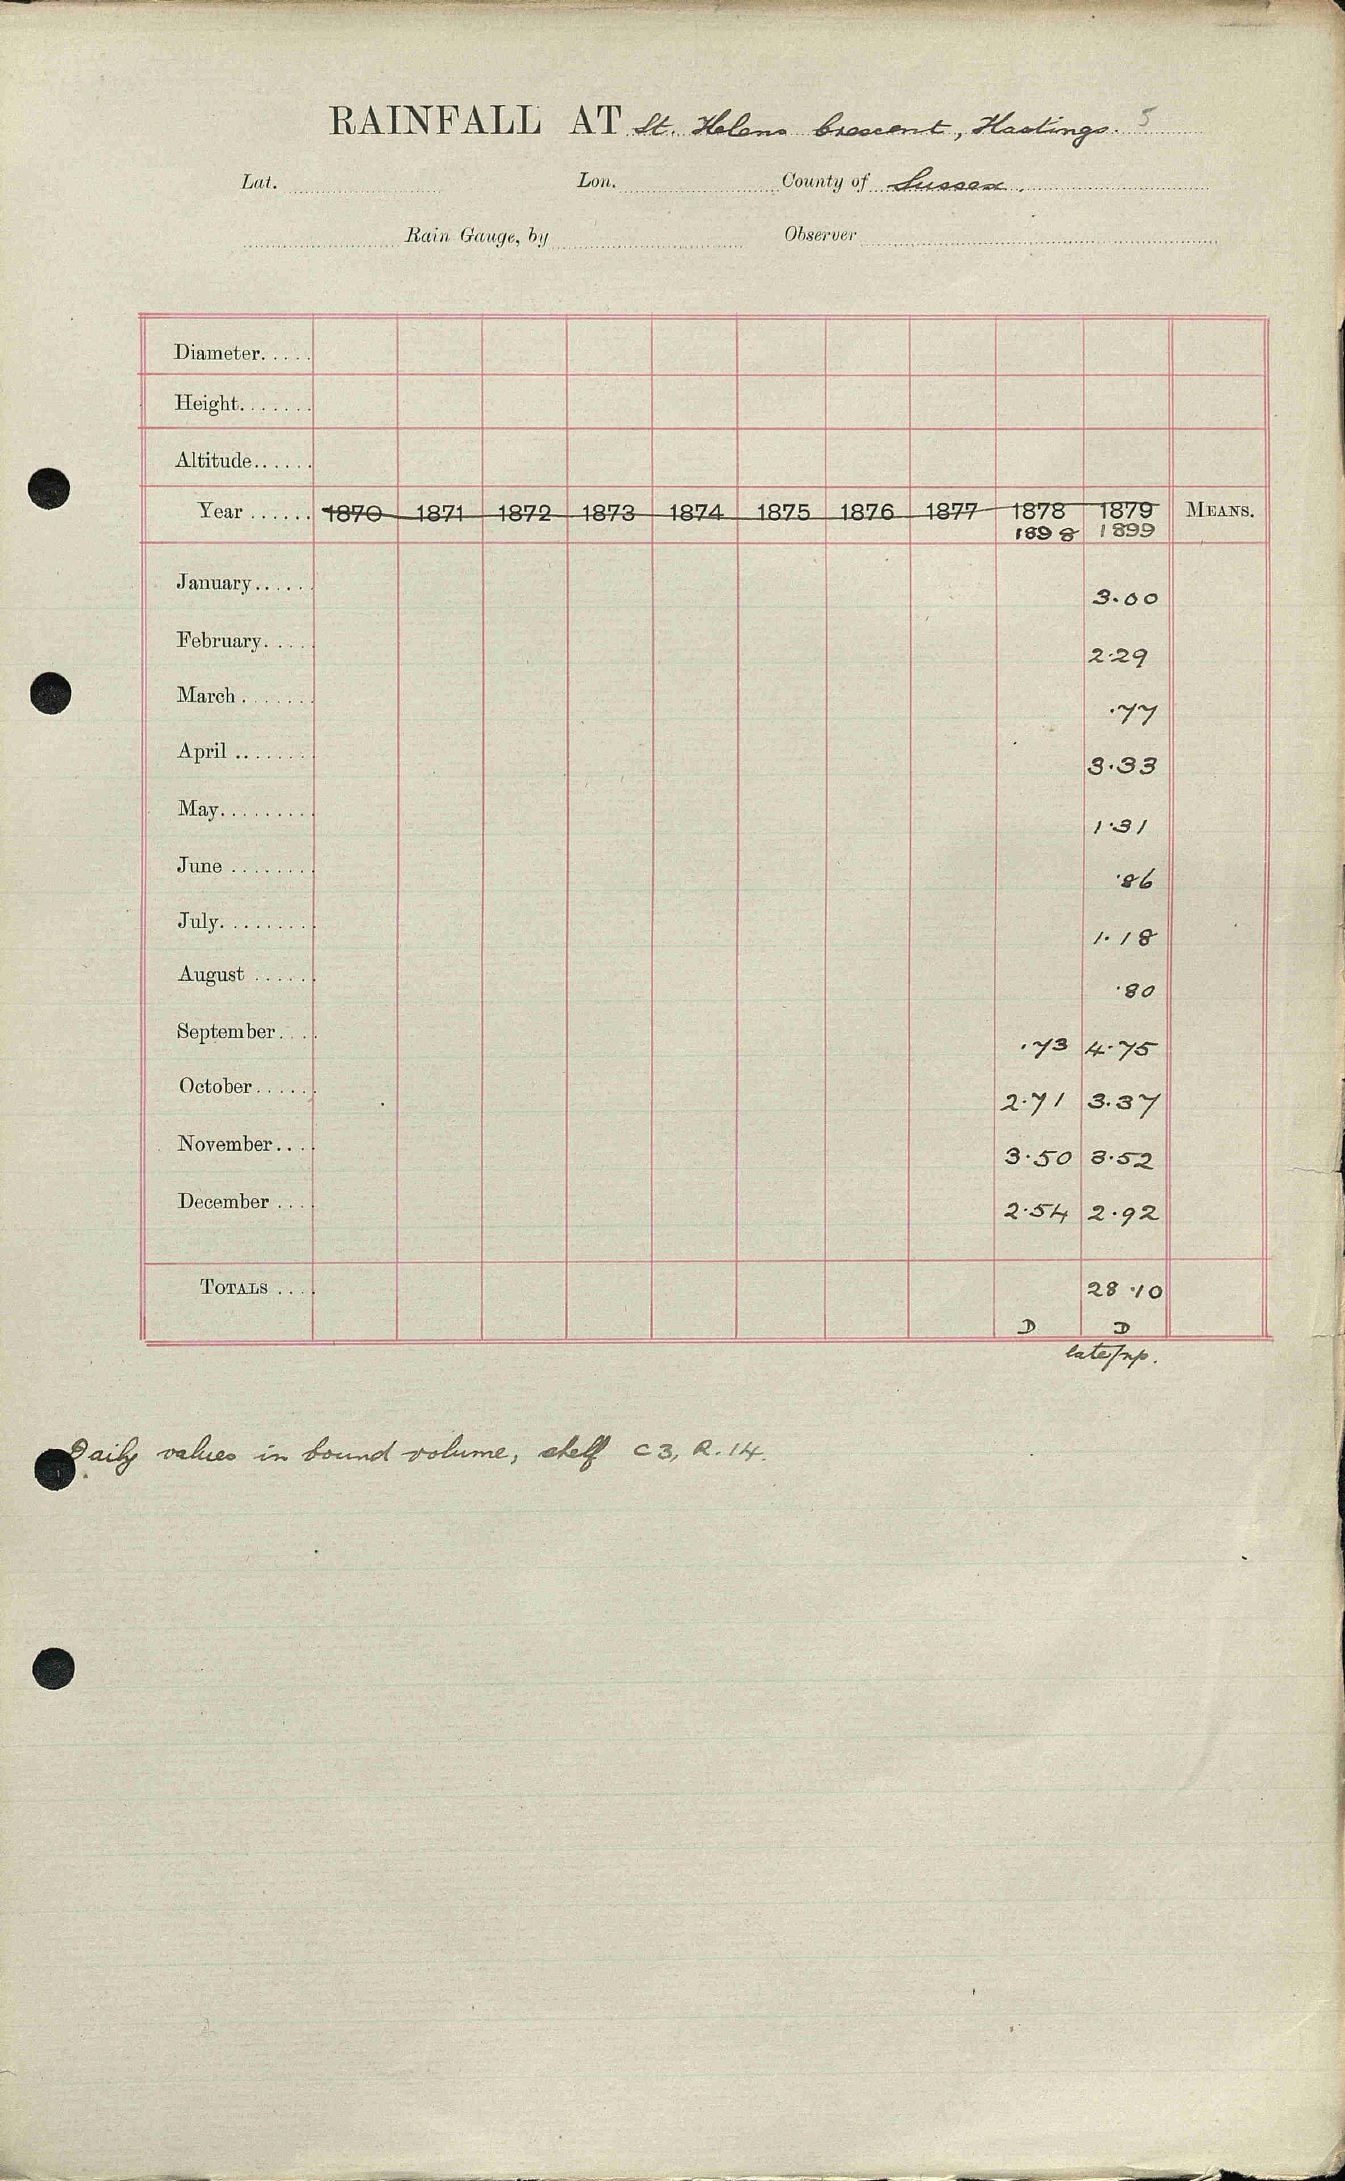 RAINFALL AT St. Helens Crescent, Hastings. 5
Lat. Lon. County of Sussex.
Rain Gauge, by Observer
Diameter
Height
Altitude
Year 1870 1871 1872 1873 1874 1875 1876 1877 1878 1879 MEANS.
1898 1899
January 3.00
February 2.29
March .77
April 3.33
May 1.31
June .86
July 1.18
August .80
September .73 4.75
October 2.71 3.37
November 3.50 3.52
December 2.54 2.92
TOTALS 28.10
D D
late/np.
Daily values in bound volume, shelf C3, R.14.